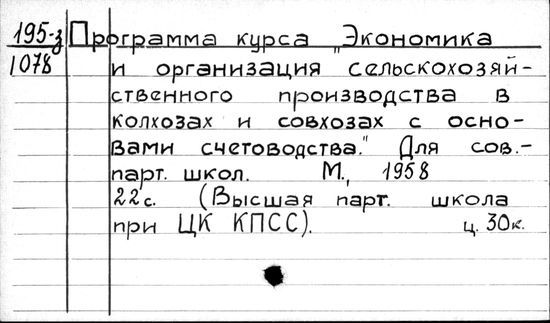 195-з Программа курса "Экономика
1078 и организация сельскохозяй-
ственного производства в
колхозах и совхозах с осно-
вами счетоводства." Для сов.-
парт. школ. М., 1958
22с. (Высшая парт. школа
при ЦК КПСС). ц. 30к.